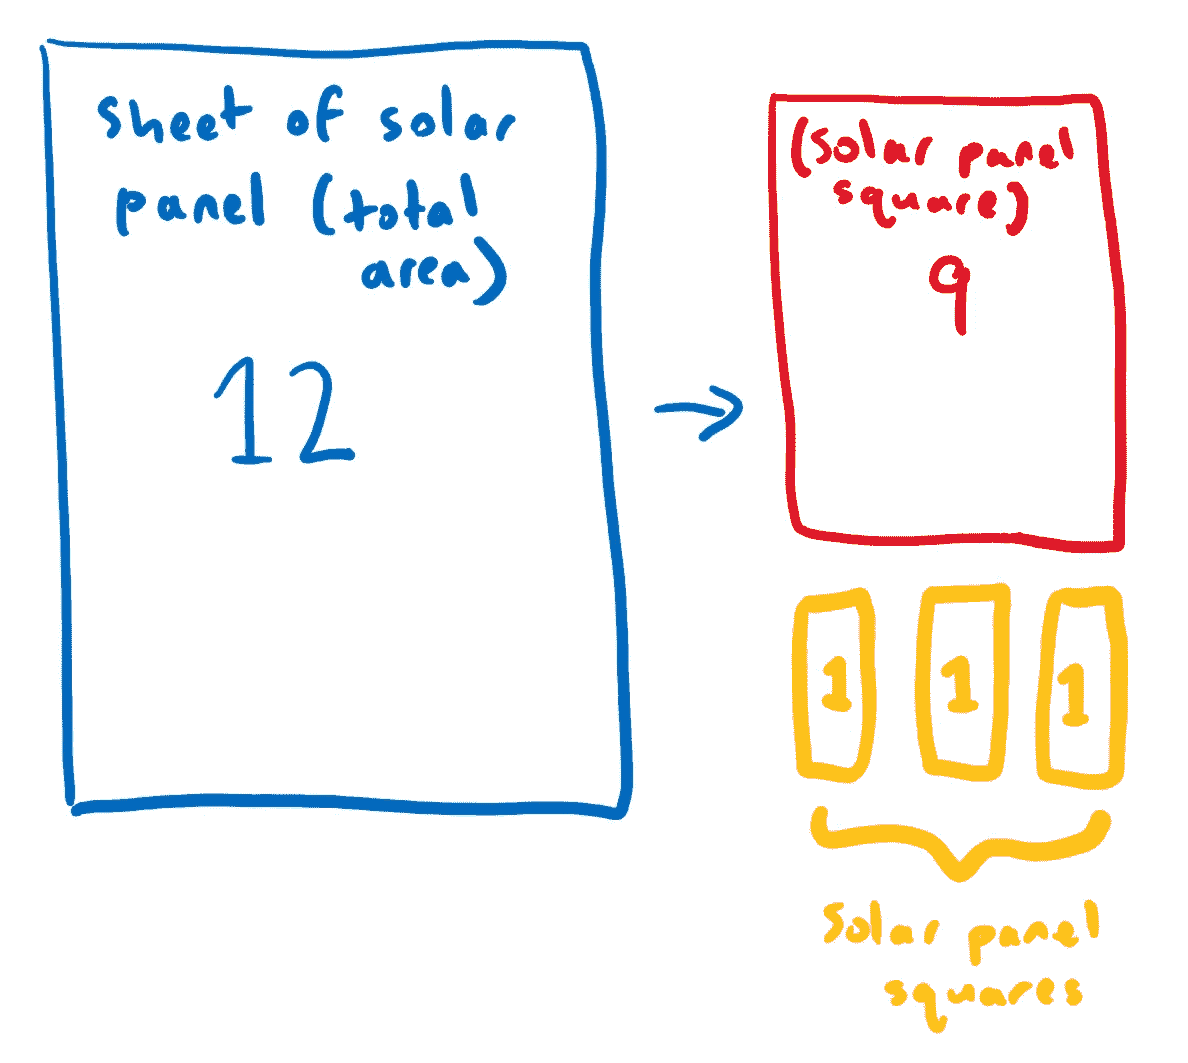 sheet of solar
panel (total
area)
12
(solar panel
square)
9
1 1 1
solar panel
squares